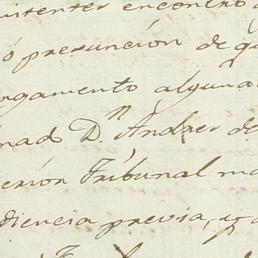 mitentes encontró
ó presunción de qu
rgamento alguna
nad Dn. Andres de
erion Tribunal ma
diencia previa, y a